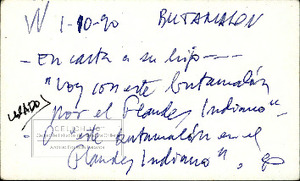 VV 1-10-90 BUTAMALON
- En carta a su hijo ---
"Voy con este butamalón
por el Flandes Indiano" -
USADO
"este butamalón en el
Flandes Indiano", 90
CEDOC